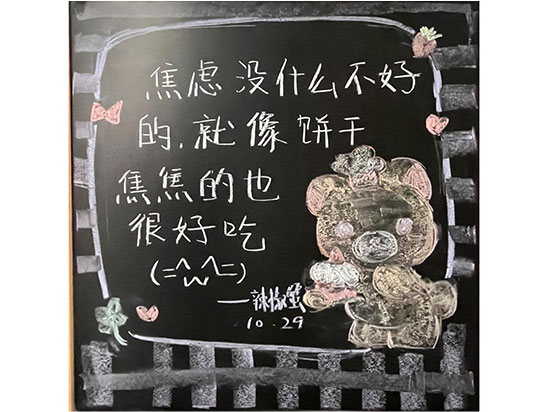 焦虑没什么不好
的,就像饼干
焦焦的也
很好吃
(=^w^=)
—辣椒蟹
10.29